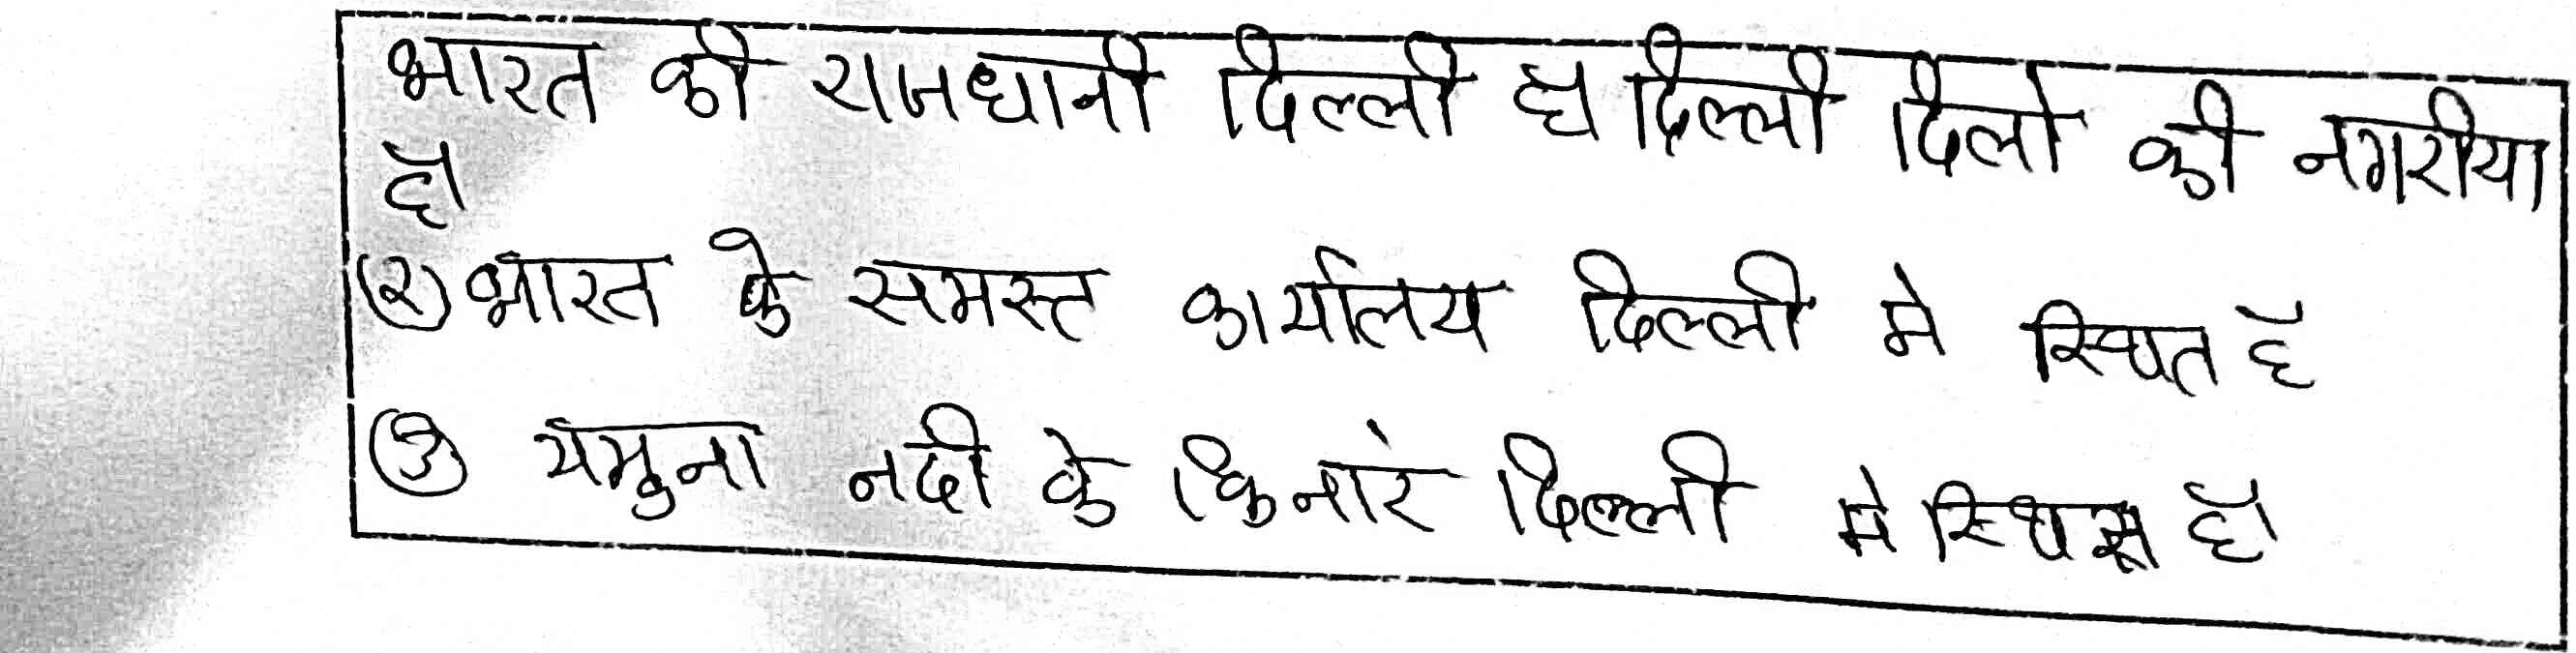 भारत की राजधानी दिल्ली है दिल्ली दिलो की नगरीया
है।
(२) भारत के समस्त कार्यालय दिल्ली मे स्थित है
(३) यमुना नदी के किनारे दिल्ली मे स्थित है।